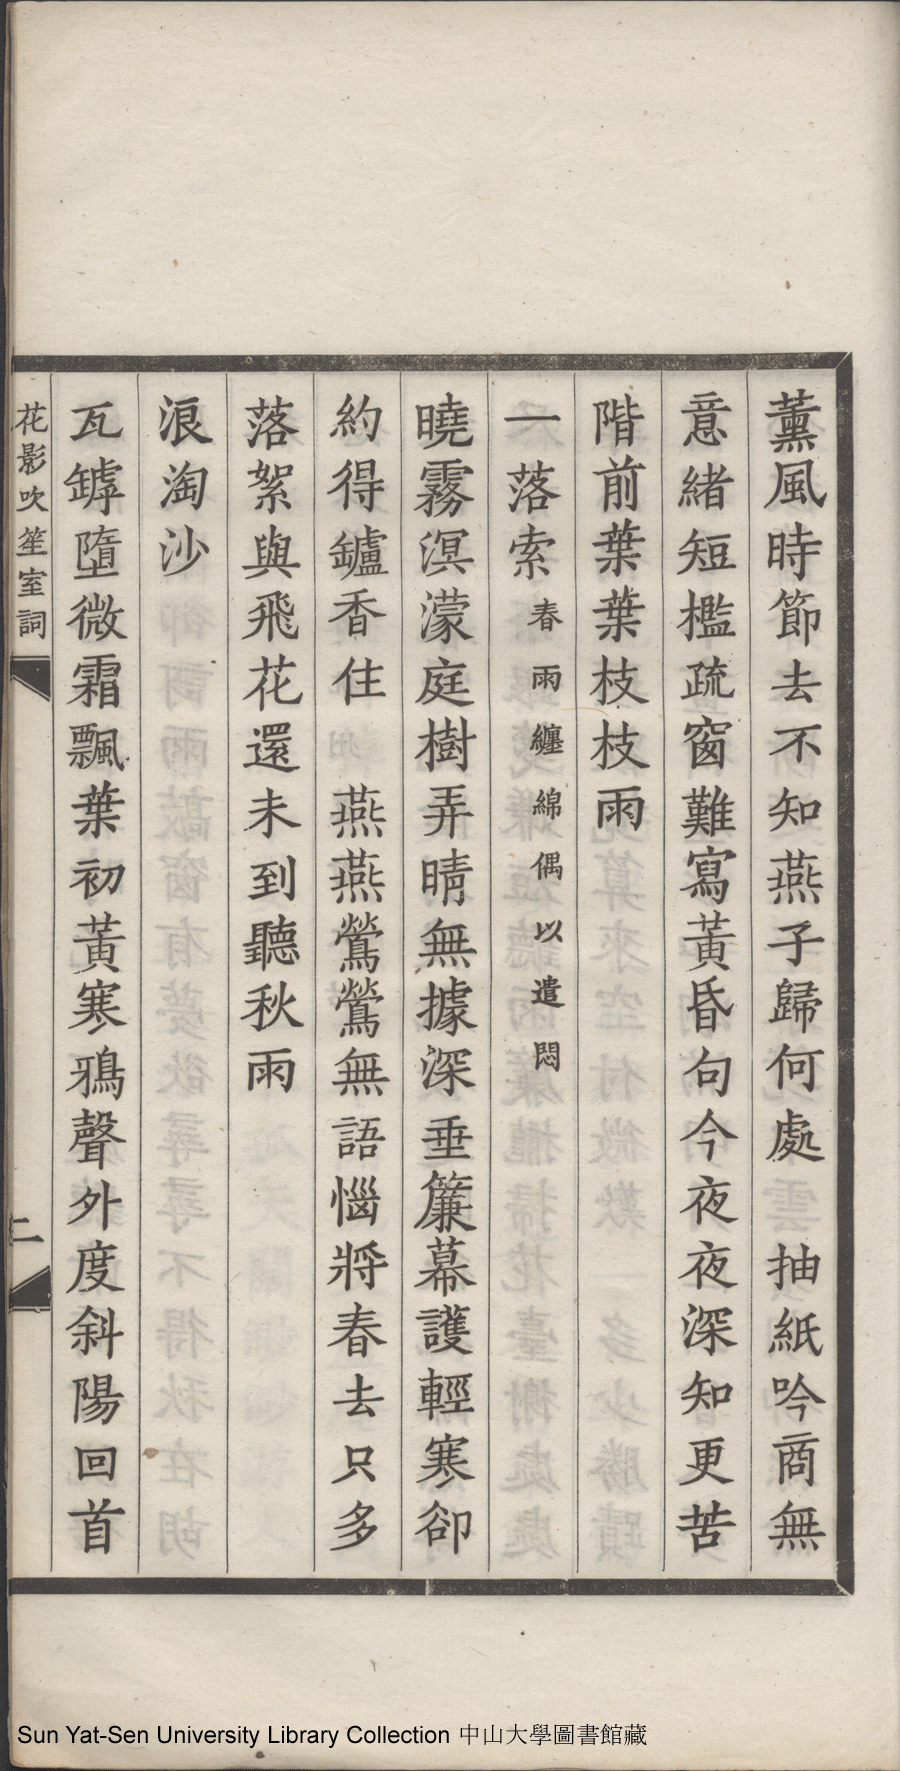 薰風時節去不知燕子歸何處　抽紙吟商無
意緒短檻疏窗難寫黃昏句今夜夜深知更苦
階前葉葉枝枝雨
一落索春雨纏綿偶以遣悶
曉霧溟濛庭樹弄晴無據深垂簾幕護輕寒卻
約得鑪香住　燕燕鶯鶯無語惱將春去只多
落絮與飛花還未到聽秋雨
浪淘沙
瓦罅墮微霜飄葉初黃寒鴉聲外度斜陽回首
花影吹笙室詞
二
Sun Yat-Sen University Library Collection 中山大學圖書館藏